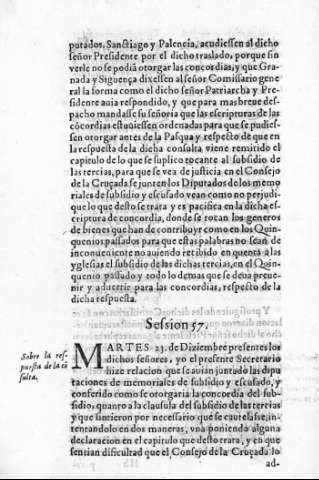 putados, Sanctiago y Palencia, acudiessen al dicho
señor Presidente por el dicho traslado, porque sin
verle no se podiā otorgar las concordias, y que Gra-
nada y Siguença dixessen al señor Comissario gene
ral la forma como el dicho señor Patriarcha y Pre-
sidente auia respondido, y que para mas breue des-
pacho mandasse su señoria que las escripturas de las
cōcordias estuuiessen ordenadas para que se pudies-
sen otorgar antes de la Pasqua y respecto de que en
la respuesta de la dicha consulta viene remitido el
capitulo de lo que se suplico tocante al subsidio de
las tercias, para que se vea de justicia en el Consejo
de la Cruçada se junten los Diputados de los memo
riales de subsidio y escusado vean como no perjudi-
que lo que desto trata y es pacifica en la dicha es-
criptura de concordia, donde se tocan los generos
de bienes que han de contribuyr como en los Quin-
quenios passados para que estas palabras no sean de
inconueniente no auiendo recibido en quenta a las
yglesias el subsidio de las dichas tercias, en el Quin-
quenio passado y todo lo demas que se deua preue-
nir y aduertir para las concordias, respecto de la
dicha respuesta.
Session 57.
Sobre la res-
puesta de la cō
sulta.
MARTES 23. de Diziembre presentes los
dichos señores, yo el presente Secretario
hize relacion que se auian juntado las dipu
taciones de memoriales de subsidio y escusado, y
conferido como se otorgaria la concordia del sub-
sidio, quanto a la clausula del subsidio de las tercias
y que sintieron por necessario que se cautelasse, in-
tentandolo en dos maneras, vna poniendo alguna
declaracion en el capitulo que desto trata, y en que
sentian dificultad que el Consejo de la Cruçada lo
ad-